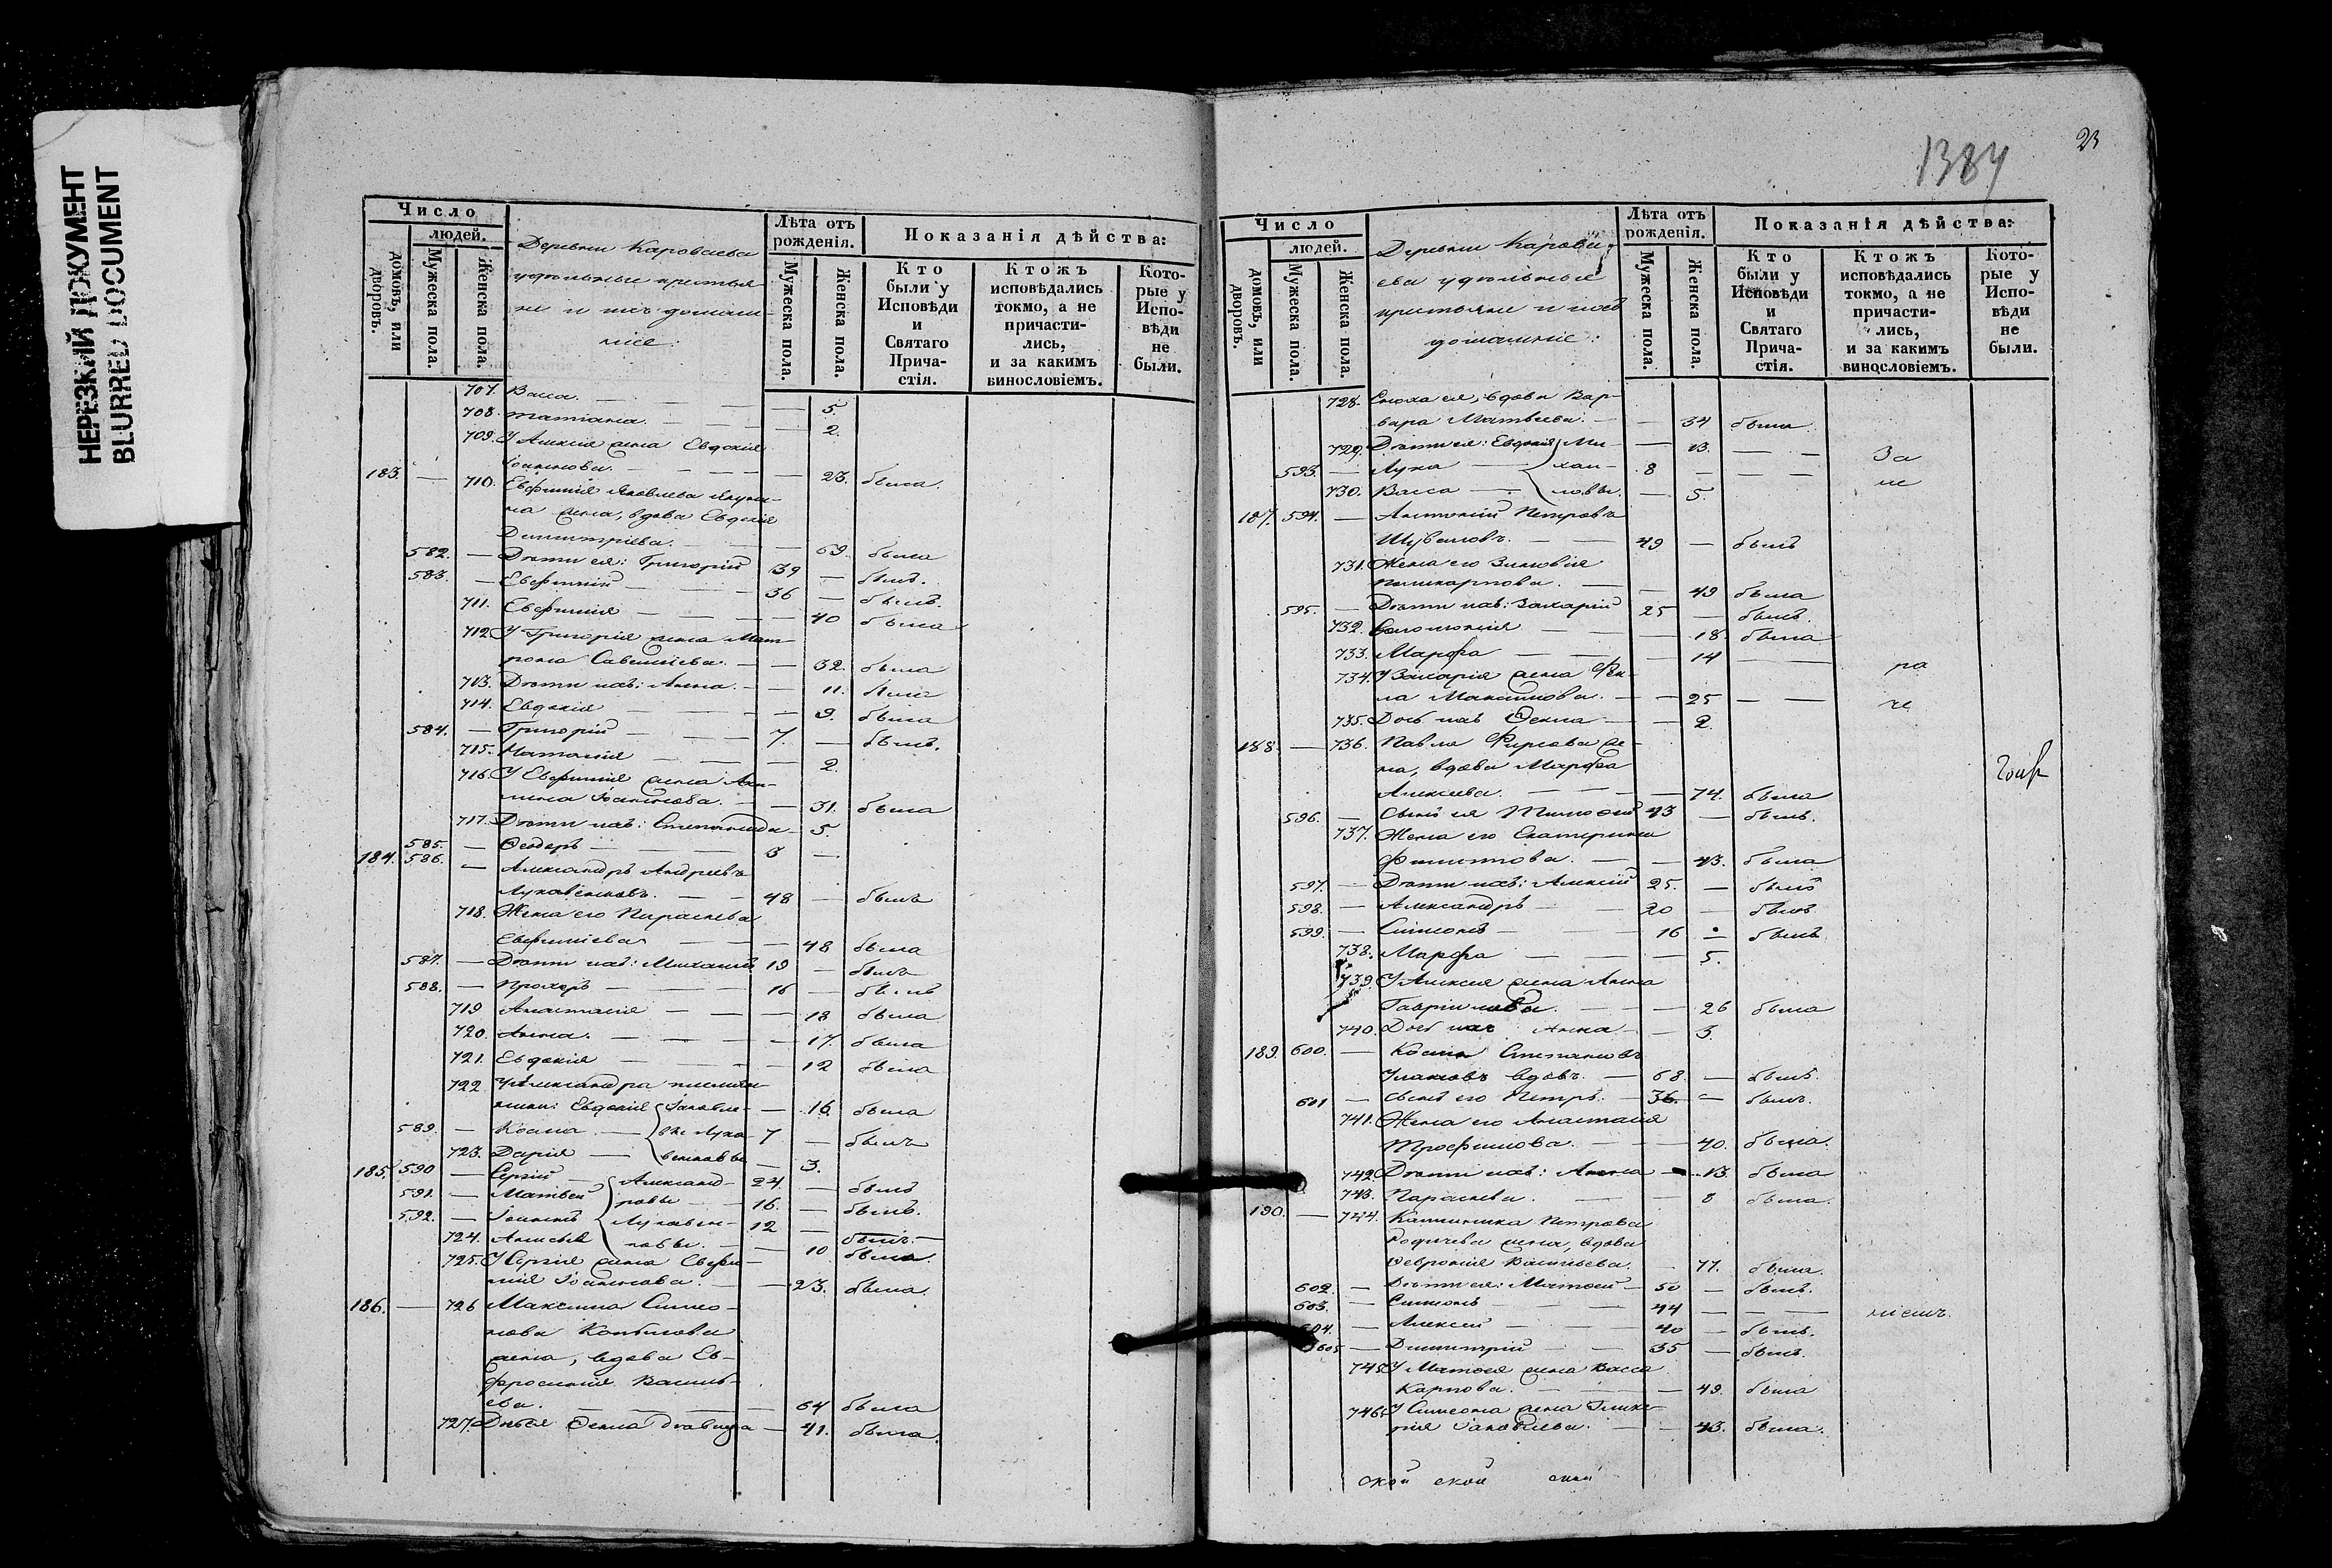 НЕРЕЗКИЙ ДОКУМЕНТ
BLURRED DOCUMENT
Число
людей.
домовъ, или дворовъ.
Мужеска пола.
Женска пола.
Деревни Караваева
удѣльные крестья-
не и ихъ домаш-
ніе:
Лѣта отъ рожденія.
Мужеска пола.
Женска пола.
Показанія дѣйства:
Кто были у Исповѣди и Святаго Прича-стія.
Ктожъ исповѣдались токмо, а не причасти-лись, и за какимъ винословіемъ.
Кото-рые у Испо-вѣди не были.
707. Васса. — — 5.
708. Татіана. — — 2.
709. У Алексія жена Евдокія
Іоаннова. — — 23. была.
183. — 710. Евфимія Яковлева
жена, вдова Евдокія
Димитріева. — 69. была
582. — Дѣти ея: Григорій 39 — былъ.
583. — Евфимій — 36 — былъ.
711. Евфимія — — 40 была
712 У Григорія жена Мат-
рона Савельева. — — 32. была
713. Дѣти ихъ: Анна. — — 11. была
714. Евдокія — — 9. была
584. — Григорій — 7. — былъ.
715. Наталія — — 2.
716. У Евфимія жена Аки-
лина Іоаннова. — — 31. была
717. Дѣти ихъ: Степанида — 5.
585. — Ѳеодоръ — 3 —
184. 586. — Александръ Андреевъ
48 — былъ
718. Жена его Параскева
Евфиміева — — 48 была
587. — Дѣти ихъ: Михаилъ 19 — былъ
588. — Прохоръ — 16 — былъ
719 Анастасія — — 18 была
720. Анна. — — 17. была
721. Евдокія — — 12 была
722 У Александра племян-
ники: Евдокія Іаковле- — 16. была
589. — Косма — вы 7 — былъ
723. Дарія — — 3.
185. 590 — Сергій — Александ- 24. — былъ
591. — Матвей ровы — 16. — былъ.
592. — Іоаннъ 12 — былъ.
724. Анисья — 10 была.
725. У Сергія жена Евфи-
мія Іоаннова. — — 23. была.
186. — 726 Максима Симео-
нова
жена, вдова Ев-
фросинія Василь-
ева. — 64 была
727. Ѳекла — 41. была.
1384
23
Число
людей.
домовъ, или дворовъ.
Мужеска пола.
Женска пола.
Деревни Карава-
ева удѣльные
крестьяне и ихъ
домашніе:
Лѣта отъ рожденія.
Мужеска пола.
Женска пола.
Показанія дѣйства:
Кто были у Исповѣди и Святаго Прича-стія.
Ктожъ исповѣдались токмо, а не причасти-лись, и за какимъ винословіемъ.
Кото-рые у Испо-вѣди не были.
728. Сноха ея, вдова Вар-
вара Матвеева. — — 34 была.
729. Дѣти ея: Евдокія Ми- — 13. — — За
593. — Лука — хаи- 8 — — — не
730. Васса — ловы. — 5.
187. 594. — Антоній Петровъ
Шуваловъ. — 49 — былъ
731. Жена его Зиновія
Поликарпова. — — 49 была
595. — Дѣти ихъ: Захарій 25 — былъ.
732. Соломонія — — 18. была
733. Марѳа — — 14 — — ра
734. У Захарія жена Ѳек-
ла Максимова. — — 25 — — че
735. Дочь ихъ Ѳекла — — 2.
188. — 736. Павла Фирсова же-
на, вдова Марѳа
Алексеева. — — 74. была
596. — Сынъ ея Тимоѳей 43 — былъ.
737. Жена его Екатерина
Филиппова. — — 43. была
597. — Дѣти ихъ: Алексій 25. — былъ
598. — Александръ — 20 — былъ
599. — Симеонъ — 16 — былъ
738. Марѳа — — 5.
739. У Алексія жена Анна
Гаврилова. — — 26 была
740. Дочь ихъ Анна — — 3.
189. 600. — Косма Степановъ
Улановъ вдовъ. — 68. — былъ.
601 — Сынъ его Петръ. — 36. — былъ.
741. Жена его Анастасія
Трофимова. — — 40. была.
742. Дѣти ихъ: Анна — 13. была
743. Параскева. — — 8 была.
190. — 744. Каллиника Петрова
жена, вдова
Февронія Васильева. — 77. была.
602. — Дѣти ея: Матѳей — 50 — былъ.
603. — Симеонъ — 44 — — —
604. — Алексей — 40 — былъ.
605 — Димитрій — 35 — былъ.
745. У Матѳея жена Васса
Карпова. — — 49. была
746. У Симеона жена Глике-
рія Іаковлева. — — 43. была.
ской ской